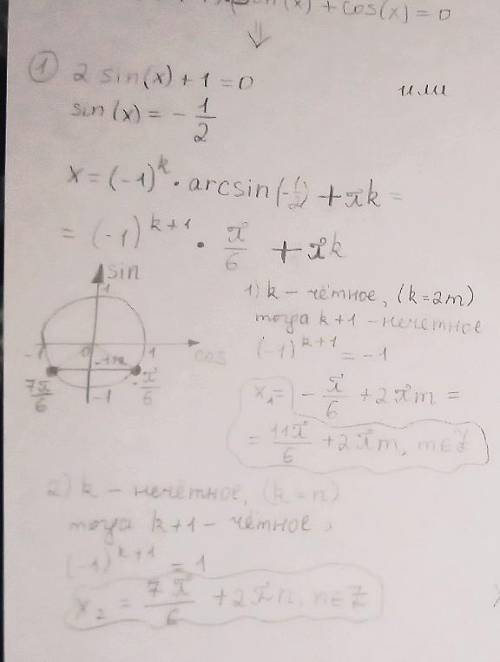 sin(x) + cos(x) = 0
⇓
① 2 sin(x) + 1 = 0
или
sin(x) = - 1/2
x = (-1)^k · arcsin(-1/2) + πk =
= (-1)^(k+1) · π/6 + πk
sin
1
-1 0 1 cos
-1/2
7π/6 -π/6
-1
1) k - чётное, (k=2m)
тогда k+1 - нечётное
(-1)^(k+1) = -1
x₁ = - π/6 + 2πm =
= 11π/6 + 2πm, m∈Z
2) k - нечётное, (k = n)
тогда k+1 - чётное,
(-1)^(k+1) = 1
x₂ = 7π/6 + 2πn, n∈Z